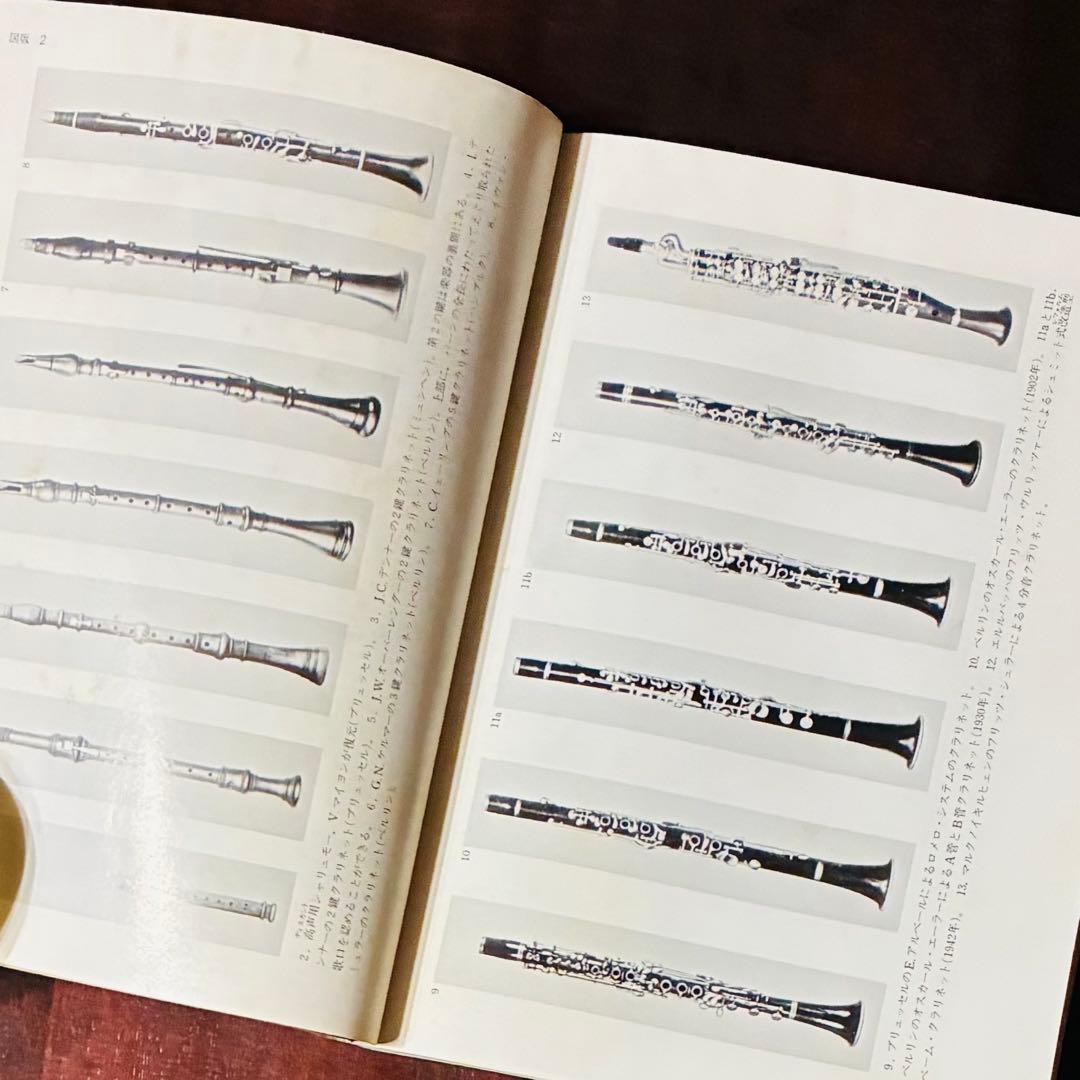 図版 2
8
7
2. 高声用シャリュモー、V.マイヨンが復元(ブリュッセル)。 3. J.C.デンナーの2鍵クラリネット(ミュンヘン)。第2の鍵は楽器の裏側にある。 4. I.デ
ンナーの2鍵クラリネット(ブリュッセル)。 5. J.W.オーバーレンダーの2鍵クラリネット(ベルリン)。上部に、
歌口を認めることができる。 6. G.N.ケルマーの3鍵クラリネット(ベルリン)。 7. C.
ミュラーのクラリネット(ベルリン)
13
12
11b
11a
10
9
9. ブリュッセルのE.アルベールによるロメロ・システムのクラリネット。 10. ベルリンのオスカール・エーラーのクラリネット(1902年)。 11aと11b.
ベルリンのオスカール・エーラーによるA管とB管クラリネット(1930年)。 12. エルルバッハのフリッツ・ウルリッツァーによるシュミット式改造型
ベーム・クラリネット(1942年)。 13. マルクノイキルヒェンのフリッツ・シュラーによる4分音クラリネット。